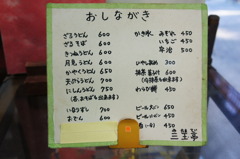 おしながき
ざるうどん 600
ざるそば 600
きつねうどん 600
月見うどん 600
かやくうどん 650
天ぷらうどん 700
にしんうどん 750
(各、おそばも出来ます)
いなりずし 700
おでん 600
かき氷 みぞれ 450
いちご 450
宇治 500
ひやしあめ 300
抹茶 600
わらび餅 450
ビール 大ビン 650